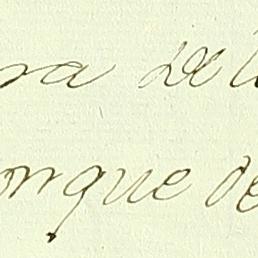 ra de l
onque de